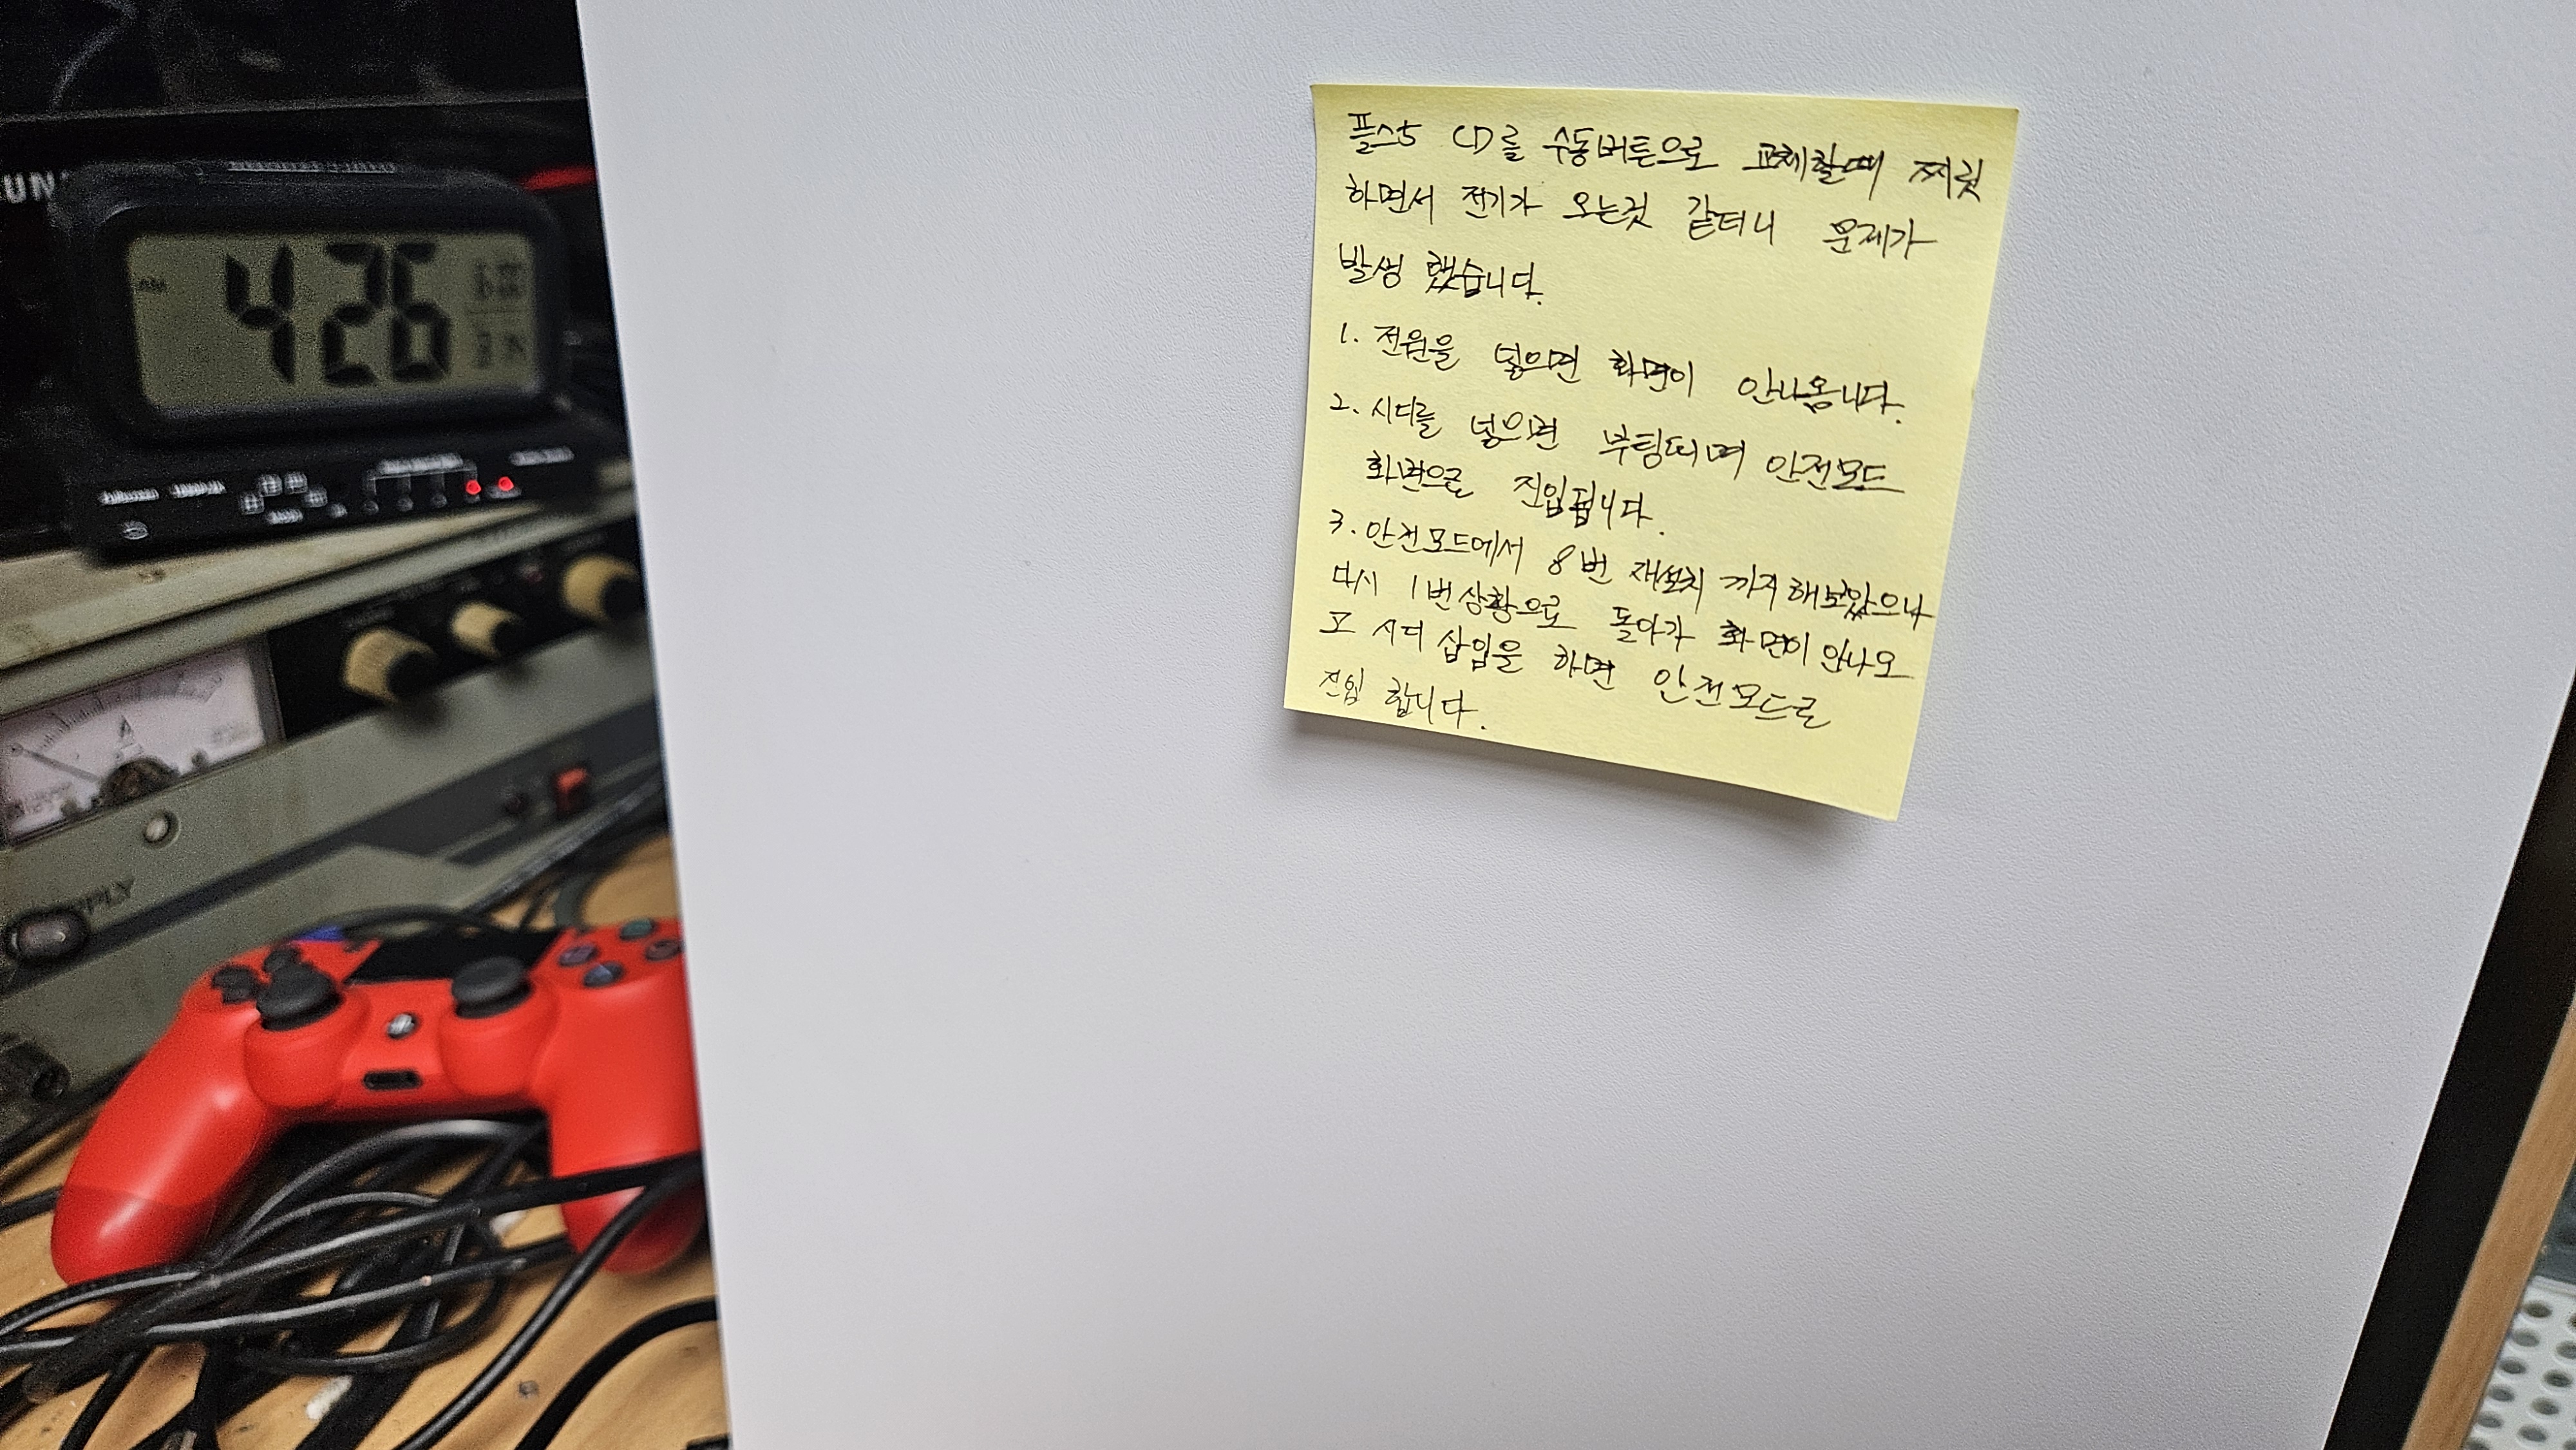 플스5 CD를 수동버튼으로 교체할때 찌릿
하면서 전기가 오는것 같더니 문제가
발생 했습니다.
1. 전원을 넣으면 화면이 안나옵니다.
2. 시디를 넣으면 부팅되며 안전모드
화면으로 진입됩니다.
3. 안전모드에서 8번 재설치 까지 해보았으나
다시 1번상황으로 돌아가 화면이 안나오
고 시디 삽입을 하면 안전모드로
진입 합니다.
4:26